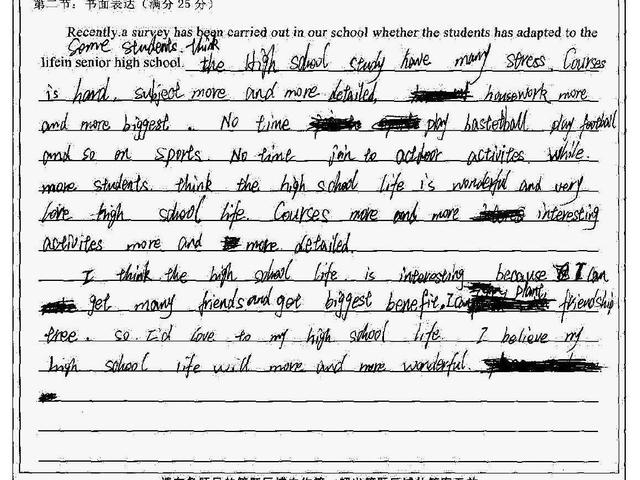 第二节：书面表达（满分25分）
Recently,a survey has been carried out in our school whether the students has adapted to the
Some students. think
lifein senior high school. the high school study have many stress. Courses
is hard. subject more and more detailed, housework more
and more biggest. No time play basketball play football
and so on sports. No time join to actdoor activites, while.
more students. think the high school life is wonderful and very
love high school life. Courses more and more interesting
activites more and more detailed.
I think the high school life is interesting because I can
get many friends and got biggest benefit. I can plant friendship
tree. so I'd love to my high school life. I believe my
high school life will more and more wonderful.